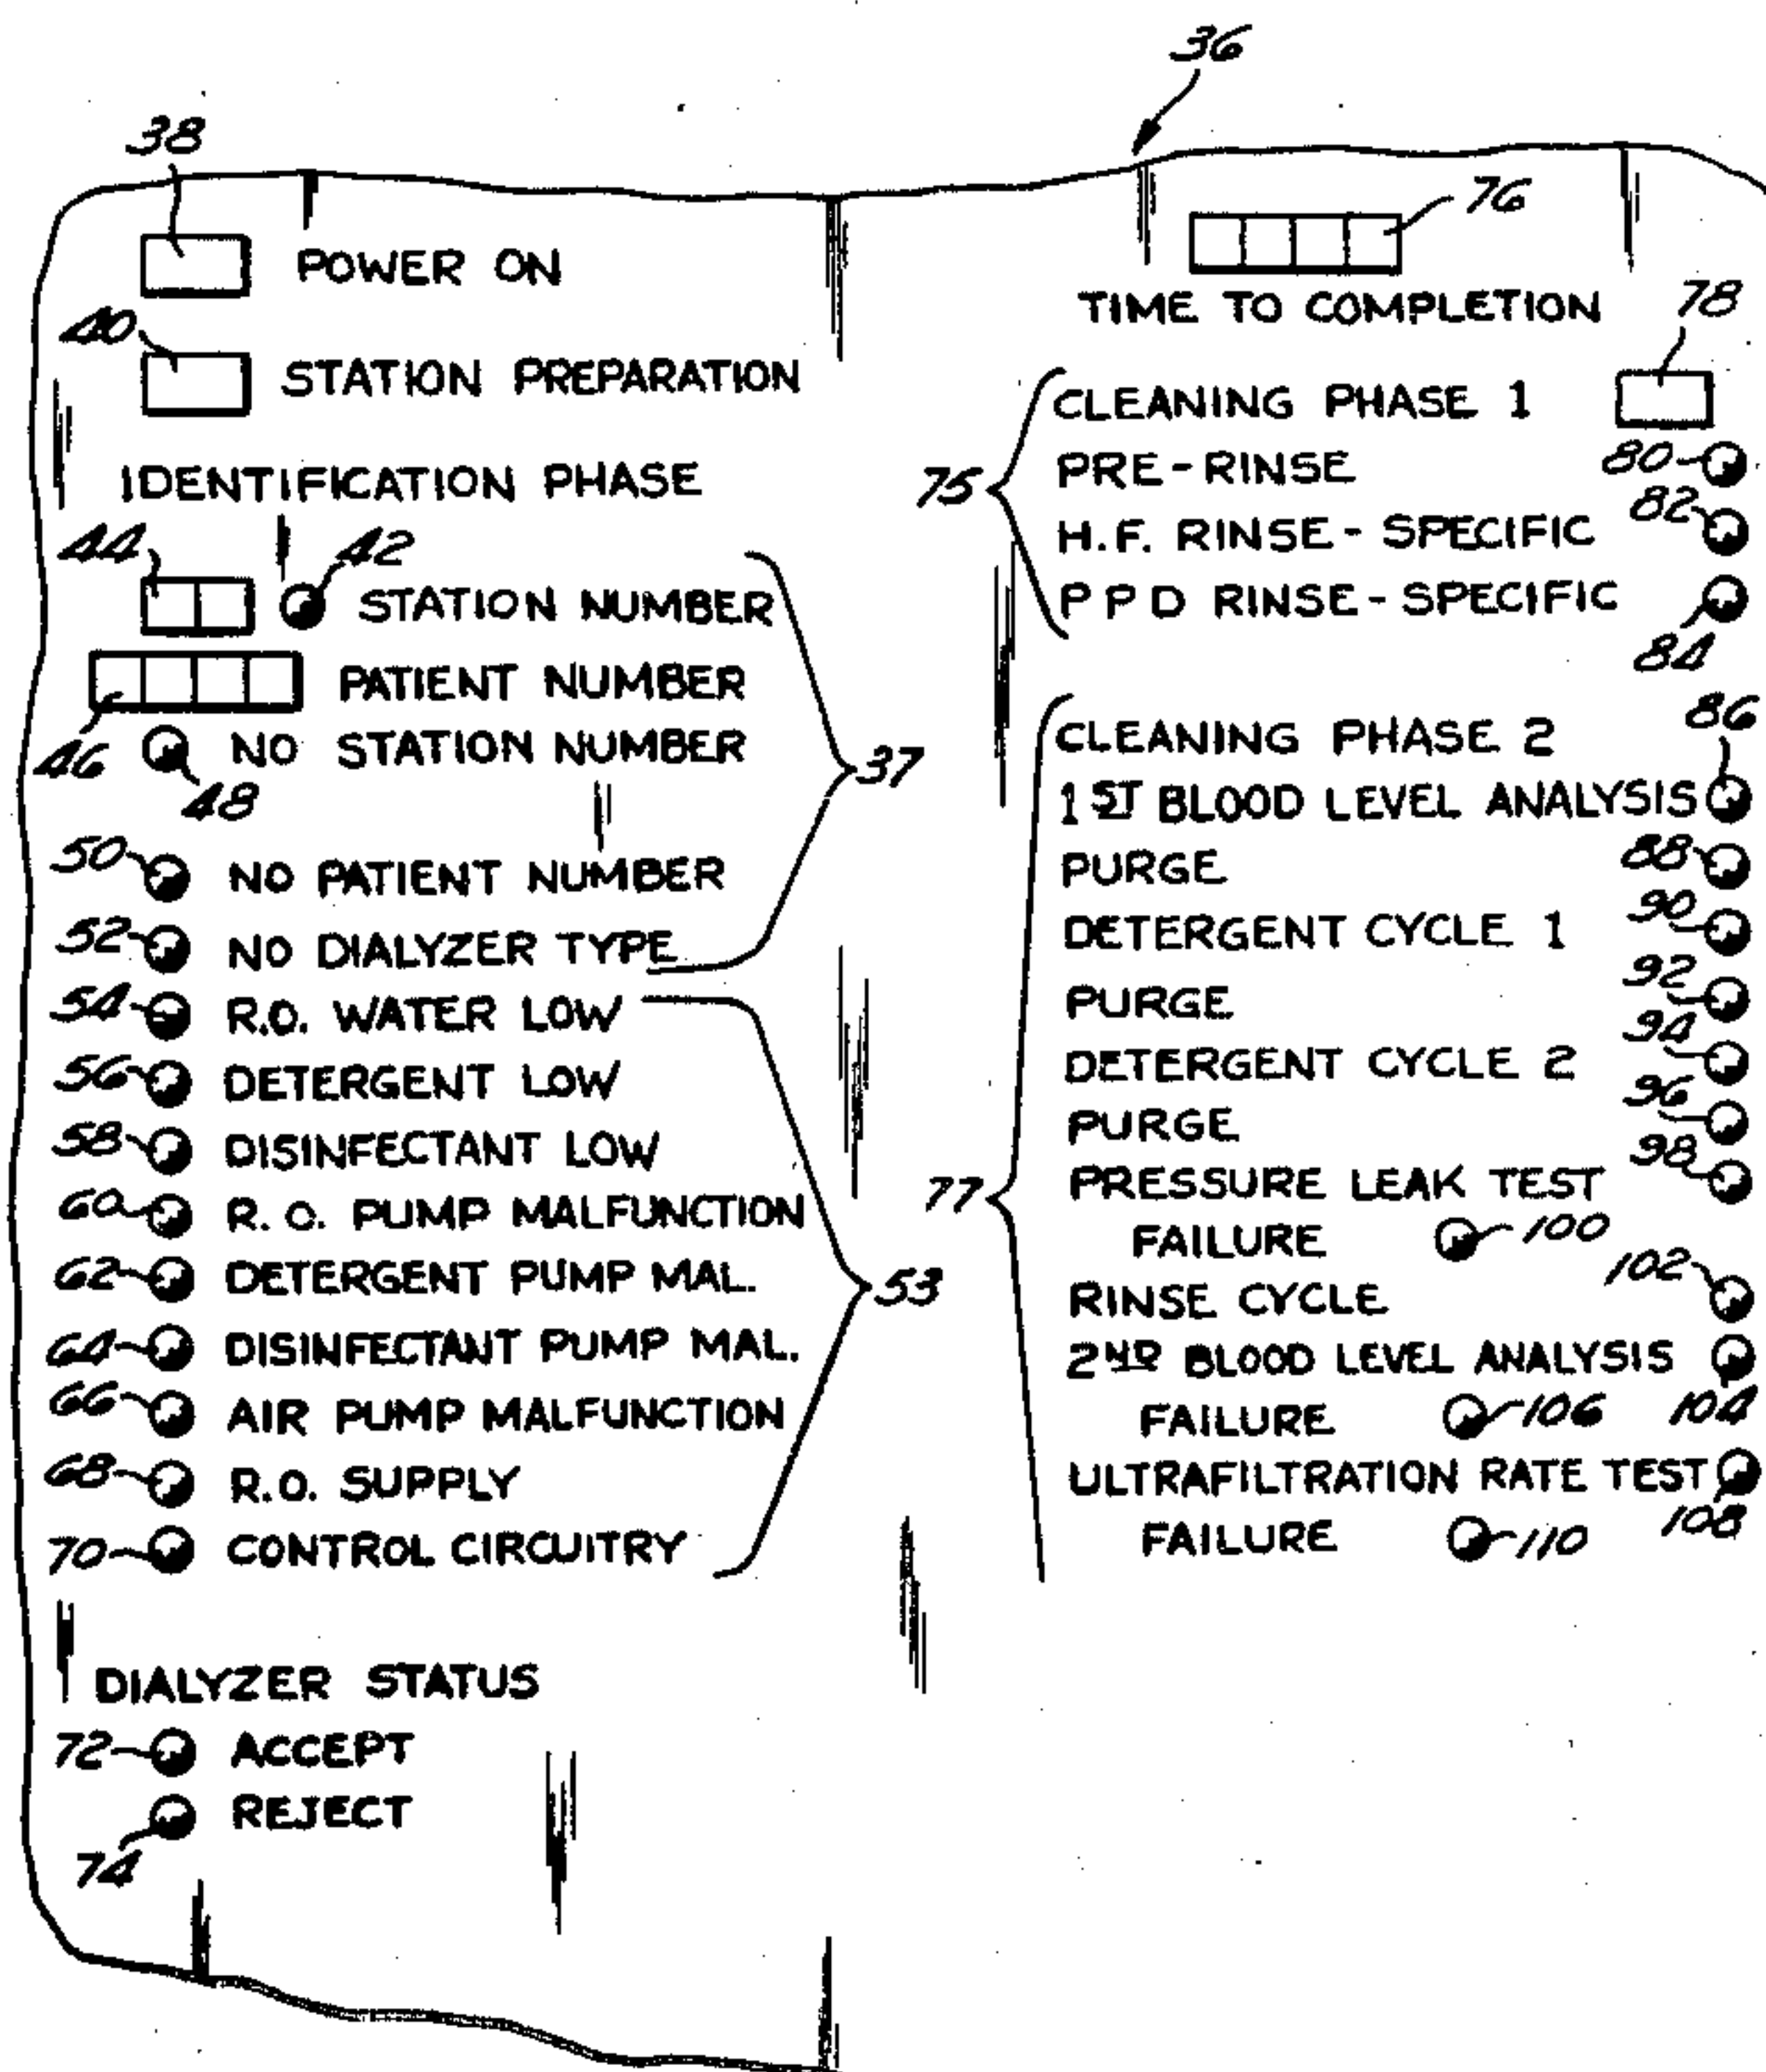 36
38
POWER ON
40
STATION PREPARATION
IDENTIFICATION PHASE
44
42
STATION NUMBER
PATIENT NUMBER
46
NO STATION NUMBER
48
37
50 NO PATIENT NUMBER
52 NO DIALYZER TYPE
54 R.O. WATER LOW
56 DETERGENT LOW
58 DISINFECTANT LOW
60 R.O. PUMP MALFUNCTION
62 DETERGENT PUMP MAL.
53
64 DISINFECTANT PUMP MAL.
66 AIR PUMP MALFUNCTION
68 R.O. SUPPLY
70 CONTROL CIRCUITRY
DIALYZER STATUS
72 ACCEPT
REJECT
74
76
TIME TO COMPLETION
78
CLEANING PHASE 1
75
PRE-RINSE 80
H.F. RINSE-SPECIFIC 82
PPD RINSE-SPECIFIC
84
86
CLEANING PHASE 2
1ST BLOOD LEVEL ANALYSIS
PURGE 88
DETERGENT CYCLE 1 90
PURGE 92
DETERGENT CYCLE 2 94
PURGE 96
77
PRESSURE LEAK TEST 98
FAILURE 100
RINSE CYCLE 102
2ND BLOOD LEVEL ANALYSIS
FAILURE 106 104
ULTRAFILTRATION RATE TEST
FAILURE 110 108